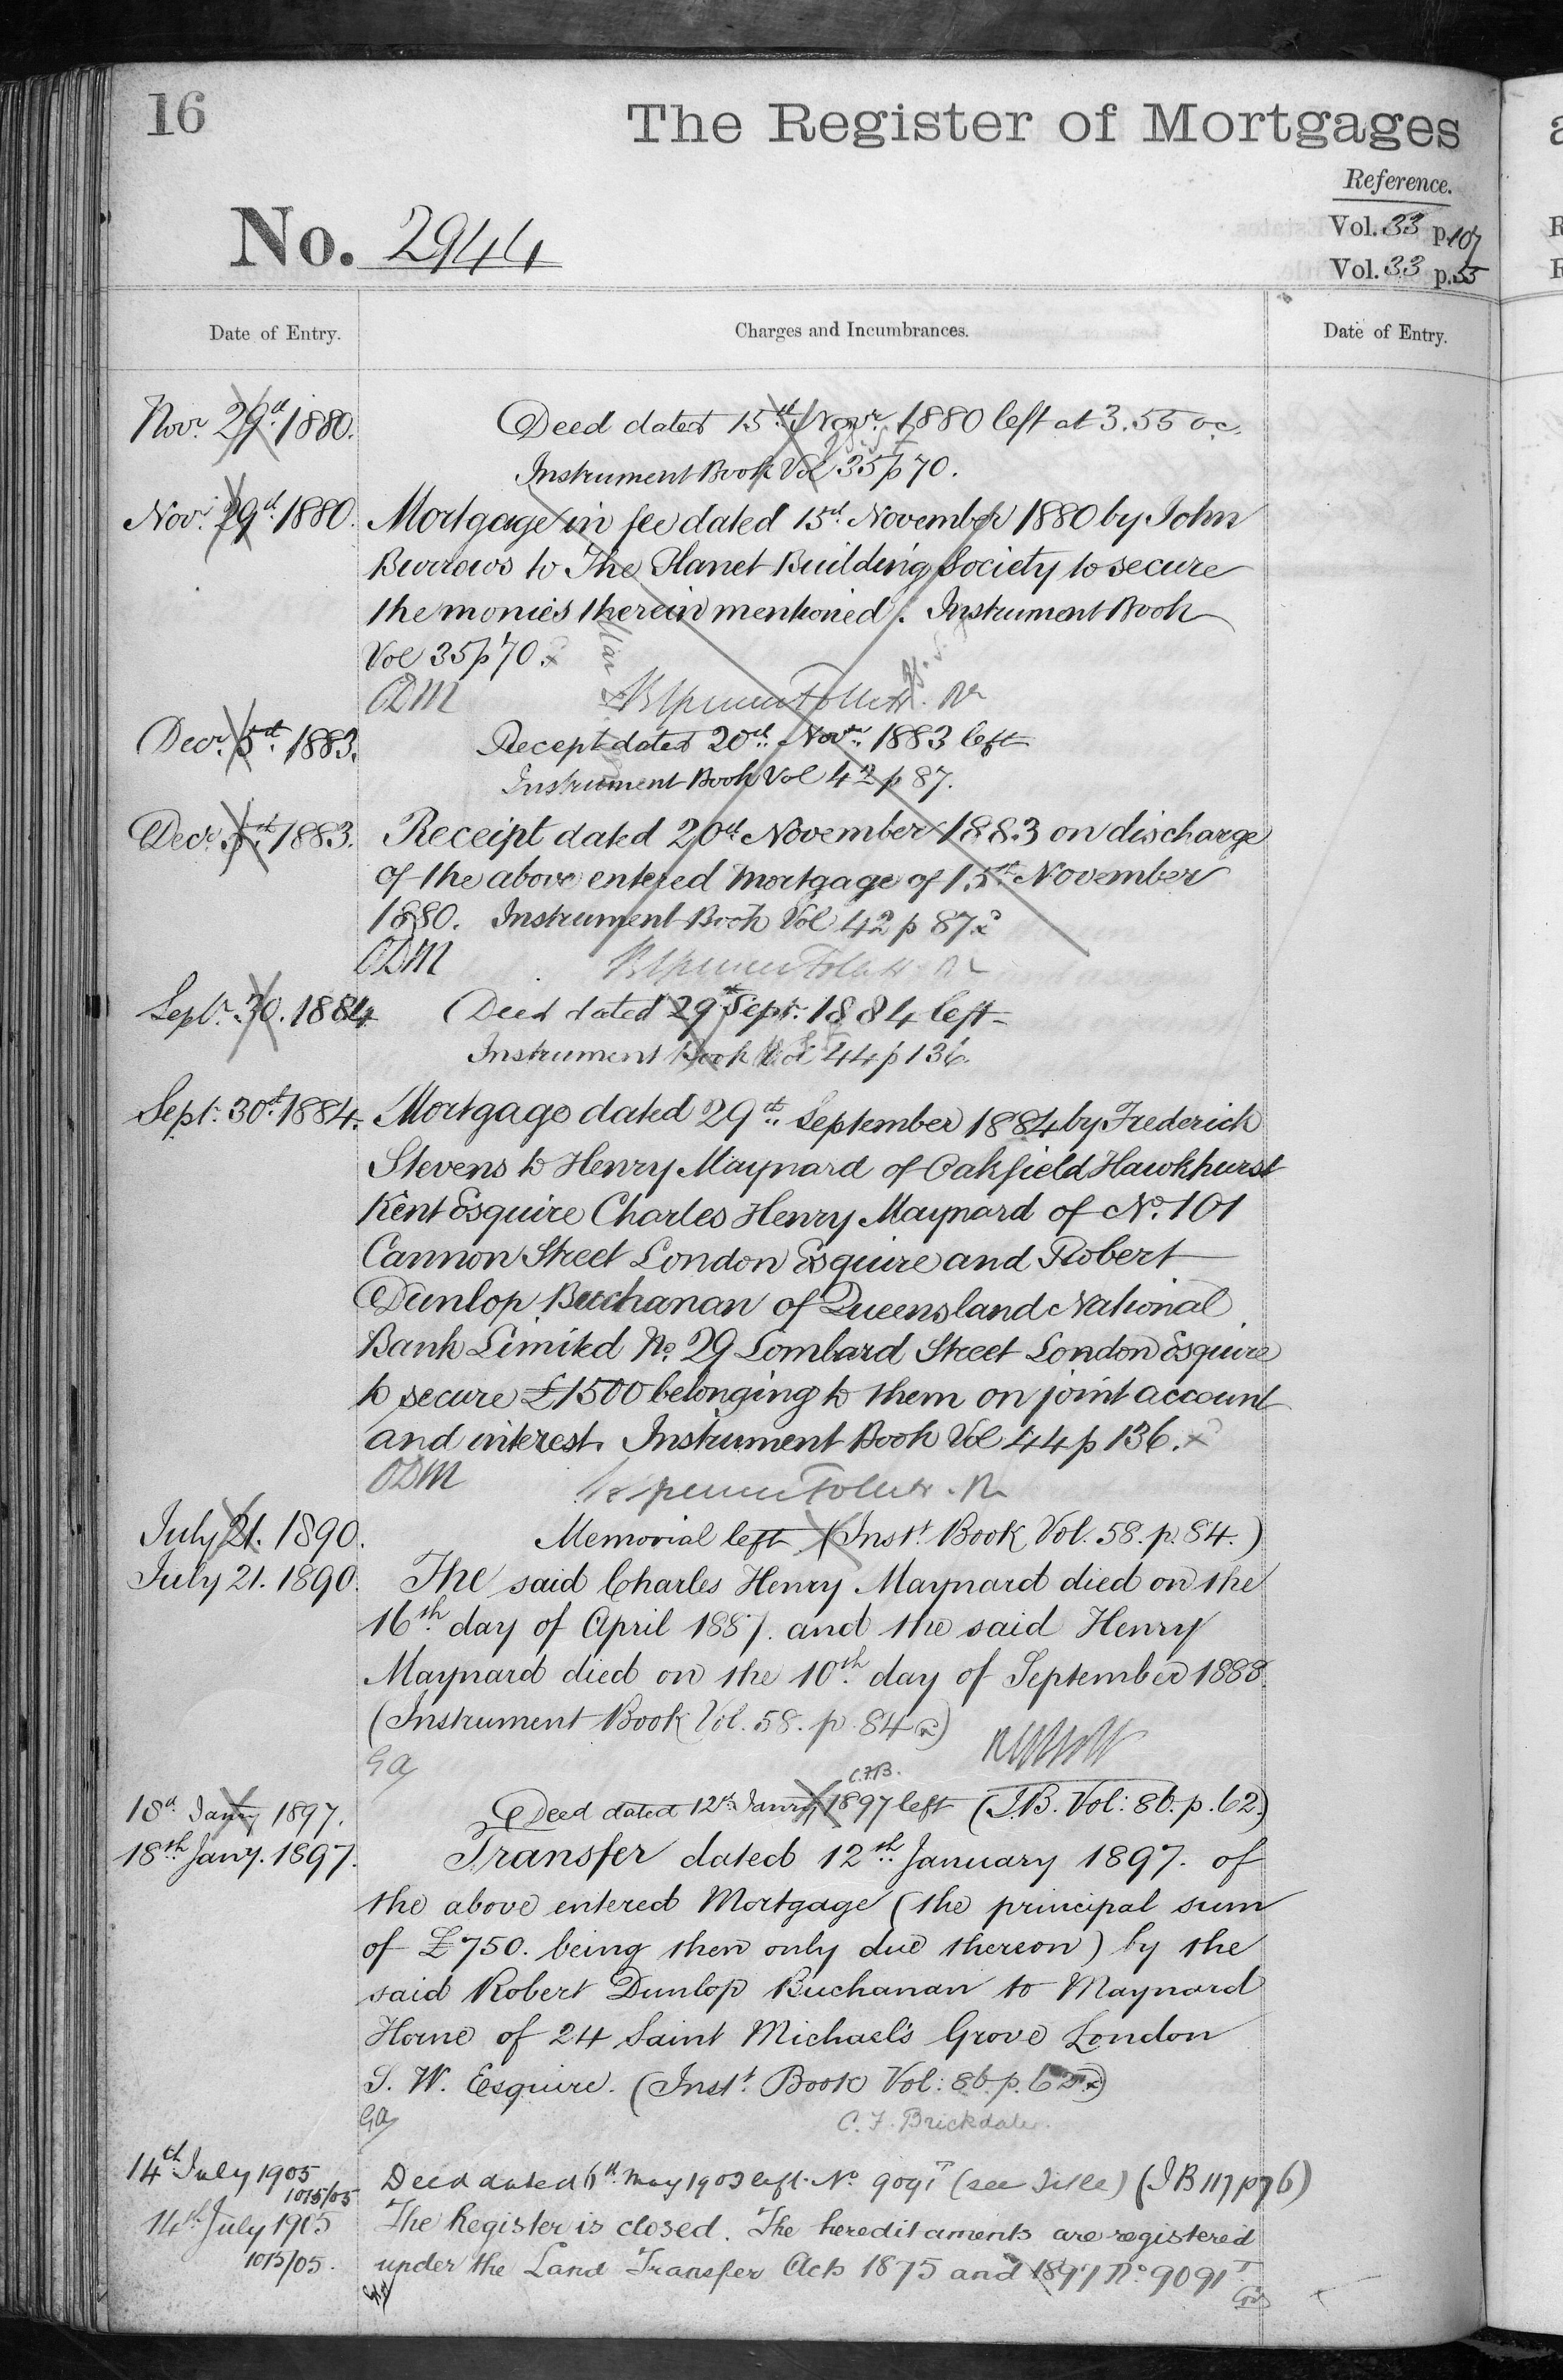 16
The Register of Mortgages
Reference.
No. 2944
Vol. 33 p. 107
Vol. 33 p. 55
Date of Entry.
Charges and Incumbrances.
Date of Entry.
Novr. 29th 1880. Deed dated 15th Novr. 1880 left at 3.55 oc.
Instrument Book Vol 35 p 70.
Novr. 29th 1880. Mortgage in fee dated 15th November 1880 by John
Burrows to The Planet Building Society to secure
the monies therein mentioned. Instrument Book
Vol 35 p 70.
ODM
Decr. 5th 1883. Receipt dated 20th Novr. 1883 left
Instrument Book Vol 42 p 87.
Decr. 5th 1883. Receipt dated 20th November 1883 on discharge
of the above entered Mortgage of 15th November
1880. Instrument Book Vol 42 p 87.
ODM
Septr. 30. 1884 Deed dated 29th Sept. 1884 left
Instrument Book Vol 44 p 136.
Sept. 30th 1884. Mortgage dated 29th September 1884 by Frederick
Stevens to Henry Maynard of Oakfield Hawkhurst
Kent Esquire Charles Henry Maynard of No. 101
Cannon Street London Esquire and Robert
Dunlop Buchanan of Queensland National
Bank Limited No. 29 Lombard Street London Esquire
to secure £1500 belonging to them on joint account
and interest. Instrument Book Vol 44 p 136.
ODM
July 21. 1890. Memorial left (Inst. Book Vol. 58. p. 84.)
July 21. 1890. The said Charles Henry Maynard died on the
16th day of April 1887. and the said Henry
Maynard died on the 10th day of September 1888.
(Instrument Book Vol. 58. p. 84)
GA
C.F.B.
18th Jany 1897. Deed dated 12th Janry 1897 left (I.B. Vol: 86. p. 62.)
18th Jany. 1897. Transfer dated 12th January 1897. of
the above entered Mortgage (the principal sum
of £750. being then only due thereon) by the
said Robert Dunlop Buchanan to Maynard
Horne of 24 Saint Michael's Grove London
S. W. Esquire. (Inst. Book Vol: 86. p. 62)
GA
C. F. Brickdale.
14th July 1905 Deed dated 6th May 1903 left. No 9091T (see Title) (I B 117 p 76)
1015/05
14th July 1905 The Register is closed. The hereditaments are registered
1015/05. under the Land Transfer Acts 1875 and 1897 No. 9091T